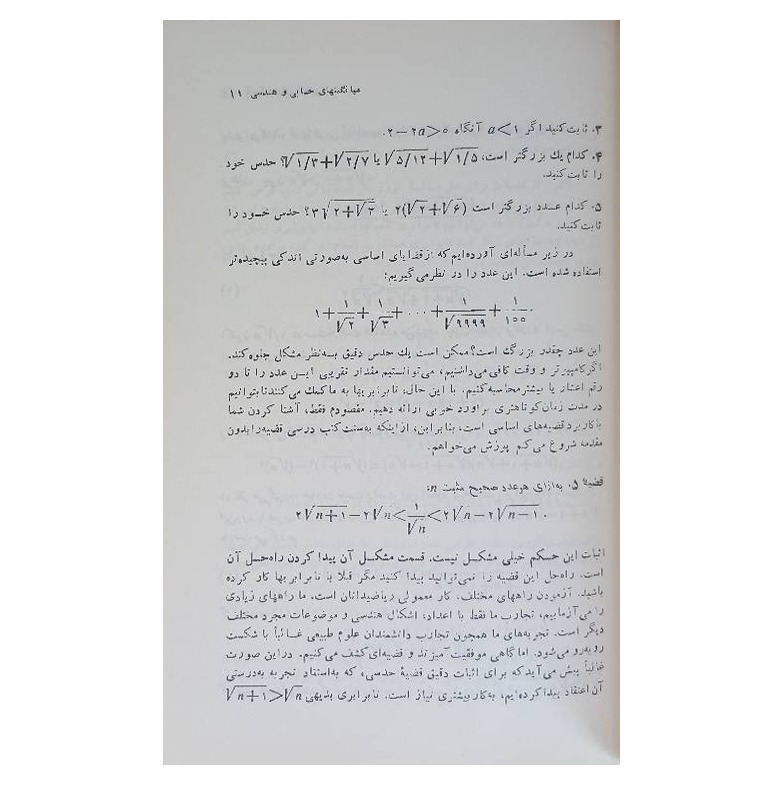 میانگینهای حسابی و هندسی ۱۱
۳. ثابت کنید اگر a<۱ آنگاه ۲−۲a>۰.
۴. کدام یك بزرگتر است، √۵/۱۲+√۱/۵ یا √۱/۳+√۲/۷؟ حدس خود
را ثابت کنید.
۵. کدام عدد بزرگتر است ۲(√۲+√۶) یا ۳√۲+√۳؟ حدس خود را
ثابت کنید.
در زیر مسأله‌ای آورده‌ایم که از قضایای اساسی به‌صورتی اندکی پیچیده‌تر
استفاده شده است. این عدد را در نظر می‌گیریم:
۱+۱/√۲+۱/√۳+...+۱/√۹۹۹۹+۱/۱۰۰.
این عدد چقدر بزرگ است؟ ممکن است یك حدس دقیق به‌نظر مشکل جلوه کند.
اگر کامپیوتر و وقت کافی می‌داشتیم، می‌توانستیم مقدار تقریبی این عدد را تا دو
رقم اعشار یا بیشتر محاسبه کنیم. با این حال، نابرابریها به ما کمك می‌کنند تا بتوانیم
در مدت زمان کوتاهتری برآورد خوبی ارائه دهیم. مقصودم فقط، آشنا کردن شما
با کاربرد قضیه‌های اساسی است، بنابراین، از اینکه به‌سنت کتب درسی قضیه را بدون
مقدمه شروع می‌کنم پوزش می‌خواهم.
قضیهٔ ۵. به‌ازای هر عدد صحیح مثبت n،
۲√n+۱−۲√n<۱/√n<۲√n−۲√n−۱.
اثبات این حکم خیلی مشکل نیست. قسمت مشکل آن پیدا کردن راه‌حل آن
است. راه‌حل این قضیه را نمی‌توانید پیدا کنید مگر قبلا با نابرابریها کار کرده
باشید. آزمودن راههای مختلف، کار معمولی ریاضیدانان است. ما راههای زیادی
را می‌آزماییم، تجارب ما فقط با اعداد، اشکال هندسی و موضوعات مجرد مختلف
دیگر است. تجربه‌های ما همچون تجارب دانشمندان علوم طبیعی غالباً با شکست
روبه‌رو می‌شود. اما گاهی موفقیت آمیزند و قضیه‌ای کشف می‌کنیم. در این صورت
غالباً پیش می‌آید که برای اثبات دقیق قضیهٔ حدسی، که به‌استناد تجربه به‌درستی
آن اعتقاد پیدا کرده‌ایم، به‌کار بیشتری نیاز است. نابرابری بدیهی √n+۱>√n